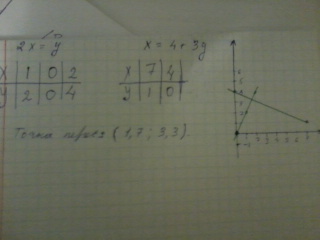 2x = y
x = 4 + 3y
x | 1 | 0 | 2
y | 2 | 0 | 4
x | 7 | 4
y | 1 | 0
Точка перес (1,7 ; 3,3).